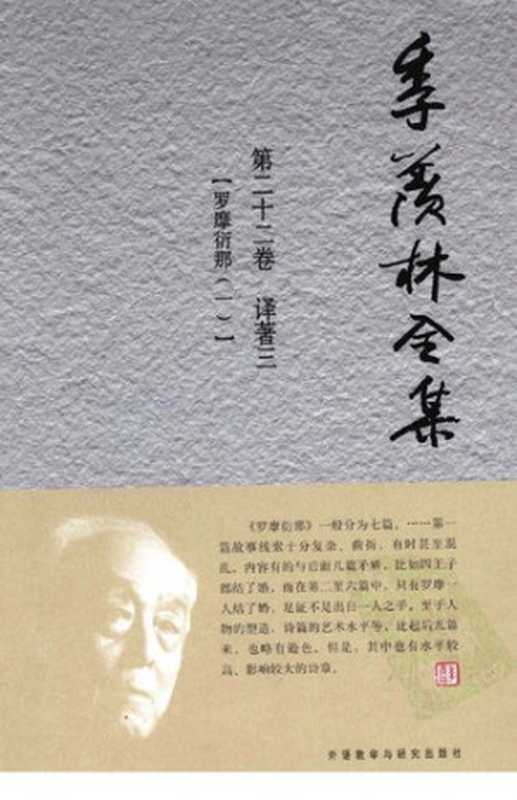 季羡林全集
第二十二卷 译著三
【罗摩衍那（一）】
《罗摩衍那》一般分为七篇。……第一
篇故事线索十分复杂、曲折，有时甚至混
乱。内容有的与后面几篇矛盾，比如四王子
都结了婚，而在第二至六篇中，只有罗摩一
人结了婚，足证不是出自一人之手。至于人
物的塑造，诗篇的艺术水平等，比起后几篇
来，也略有逊色。但是，其中也有水平较
高、影响较大的诗章。
外语教学与研究出版社